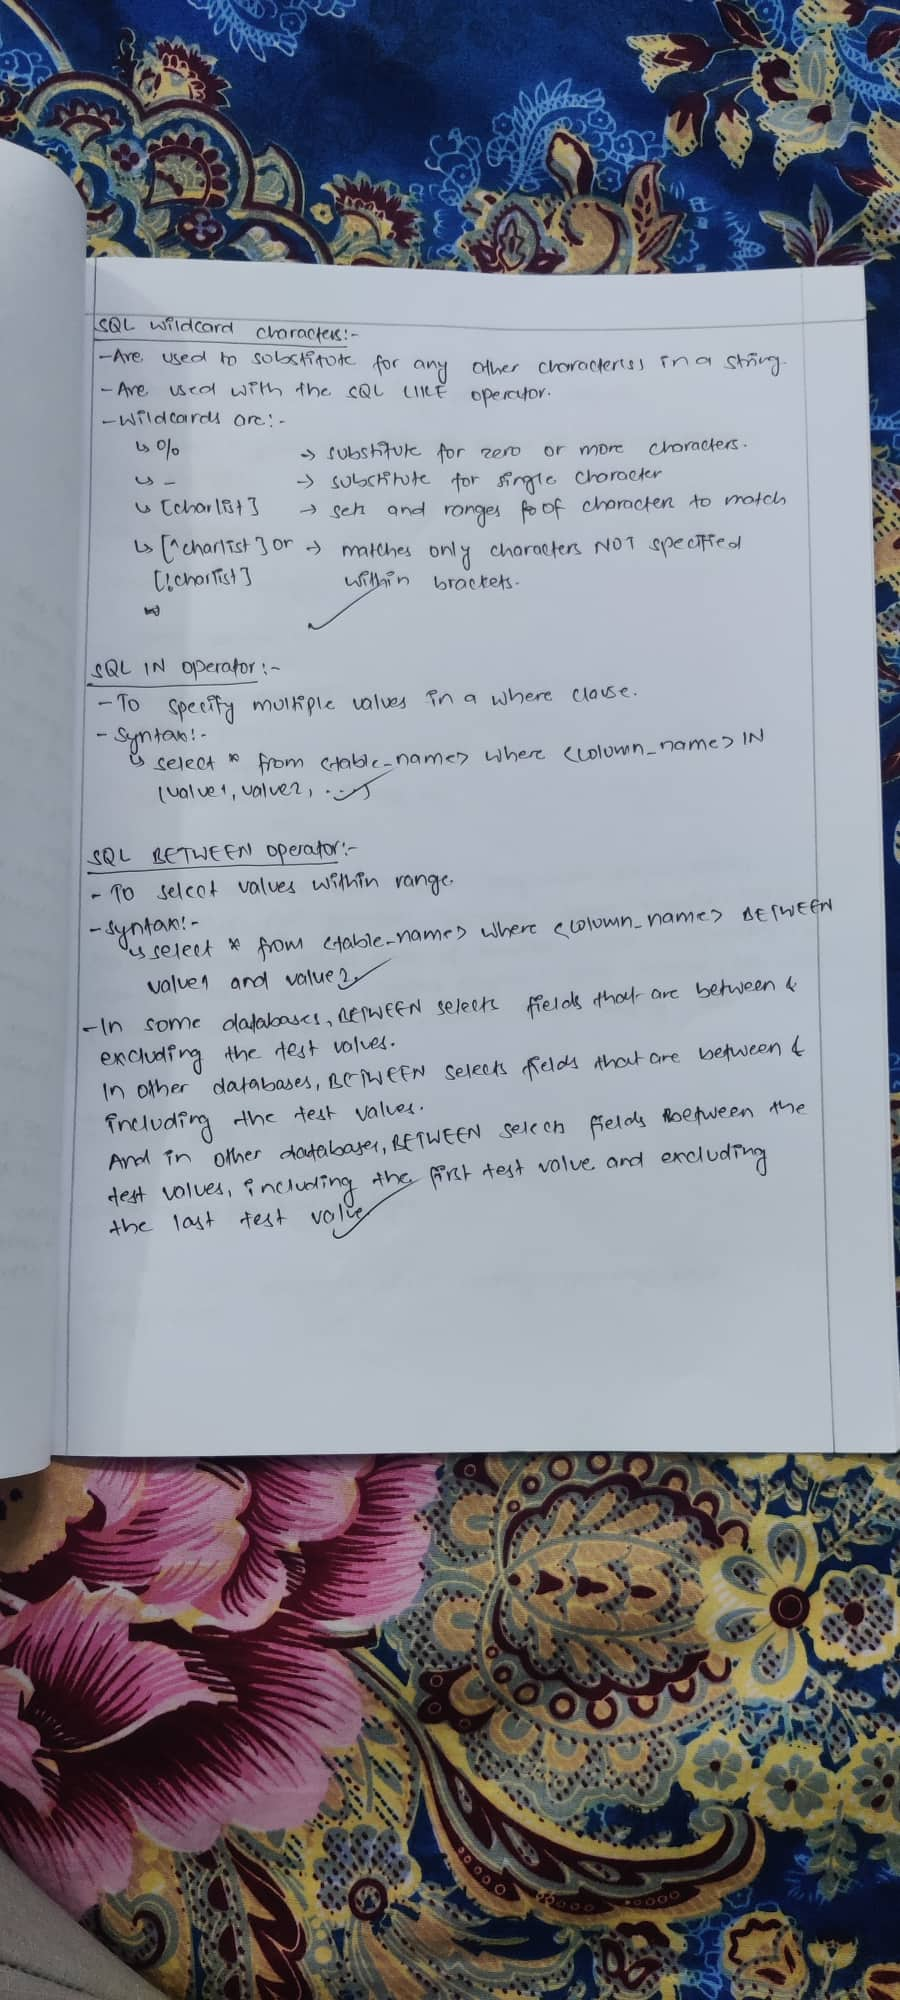 SQL Wildcard characters:-
-Are used to substitute for any other character(s) in a string.
-Are used with the SQL LIKE operator.
-Wildcards are:-
↳ % → substitute for zero or more characters.
↳ _ → substitute for single character
↳ [charlist] → sets and ranges of characters to match
↳ [^charlist] or → matches only characters NOT specified
[!charlist] within brackets.
SQL IN operator:-
- To specify multiple values in a where clause.
- Syntax:-
↳ select * from <table_name> where <column_name> IN
(value1, value2, ...)
SQL BETWEEN operator:-
- To select values within range.
- Syntax:-
↳ select * from <table_name> where <column_name> BETWEEN
value1 and value2
-In some databases, BETWEEN selects fields that are between &
excluding the test values.
In other databases, BETWEEN selects fields that are between &
including the test values.
And in other databases, BETWEEN selects fields between the
test values, including the first test value and excluding
the last test value